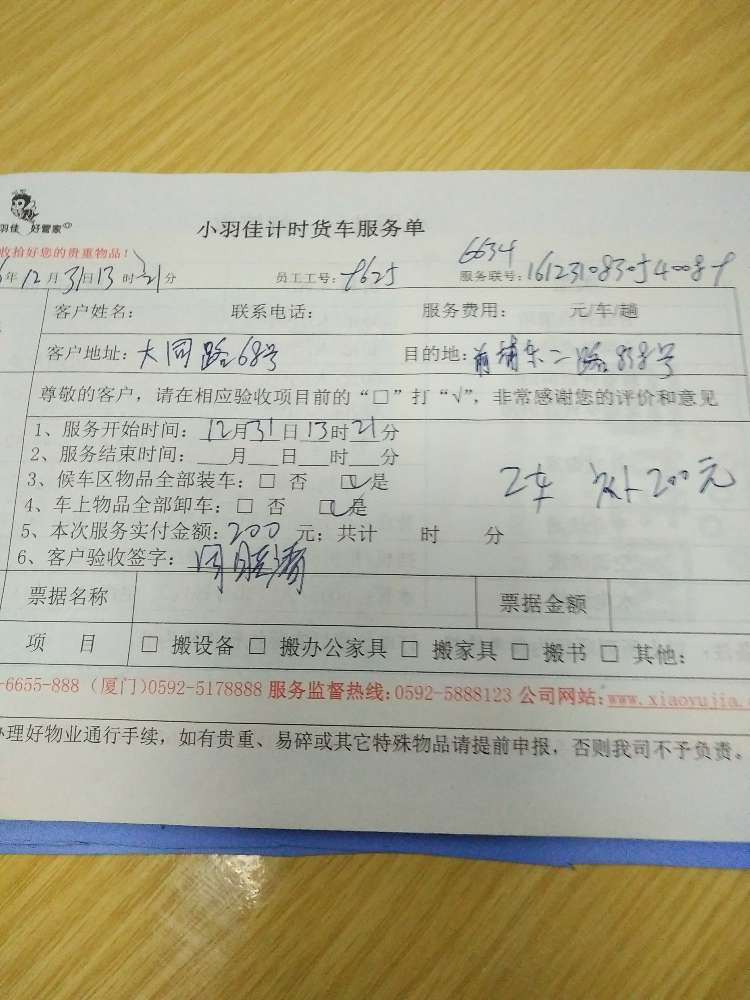 羽佳 好管家
小羽佳计时货车服务单
收拾好您的贵重物品!
6634
6年12月31日13时21分 员工工号:9625 服务联号:1612310830540089
客户姓名: 联系电话: 服务费用: 元/车/趟
客户地址:大同路68号 目的地:前埔东二路838号
尊敬的客户,请在相应验收项目前的“□”打“√”,非常感谢您的评价和意见
1、服务开始时间:12月31日13时21分
2、服务结束时间:___月___日___时___分
3、候车区物品全部装车:□ 否 ☑是
2车 另外200元
4、车上物品全部卸车:□ 否 ☑是
5、本次服务实付金额:200 元;共计 时 分
6、客户验收签字:
票据名称 票据金额
项 目 □ 搬设备 □ 搬办公家具 □ 搬家具 □ 搬书 □ 其他:
-6655-888 (厦门)0592-5178888 服务监督热线:0592-5888123 公司网站:www.xiaoyujia.
办理好物业通行手续,如有贵重、易碎或其它特殊物品请提前申报,否则我司不予负责。